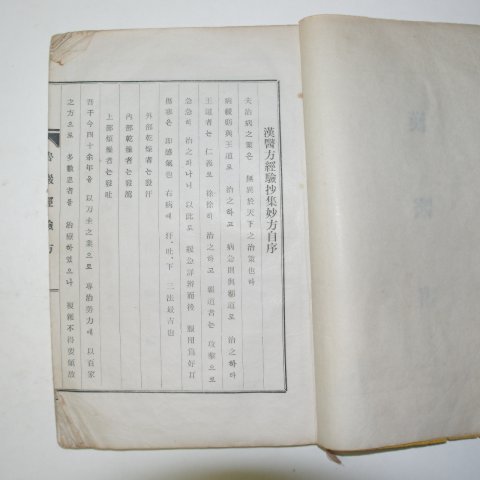 漢醫方經驗抄集妙方自序
夫治病之策은 無異於天下之治策也라
病緩則與王道로 治之하고 病急則與覇道로 治之하라
王道者는 仁義로 徐徐히 治之하고 覇道者는 攻擊으로
急急히 治之라나니 以此로 緩急詳辨而後 服用爲好耳
傷寒은 即感氣也 右病에 汗、吐、下 三法最吉也
外部乾燥者는發汗
內部乾燥者는發瀉
上部煩燥者는發吐
吾于今四十余年을 以刀圭之業으로 專治勞力에 以百家
之方으로 多數患者를 治療하였으나 複雜不得要領故
經驗方
漢